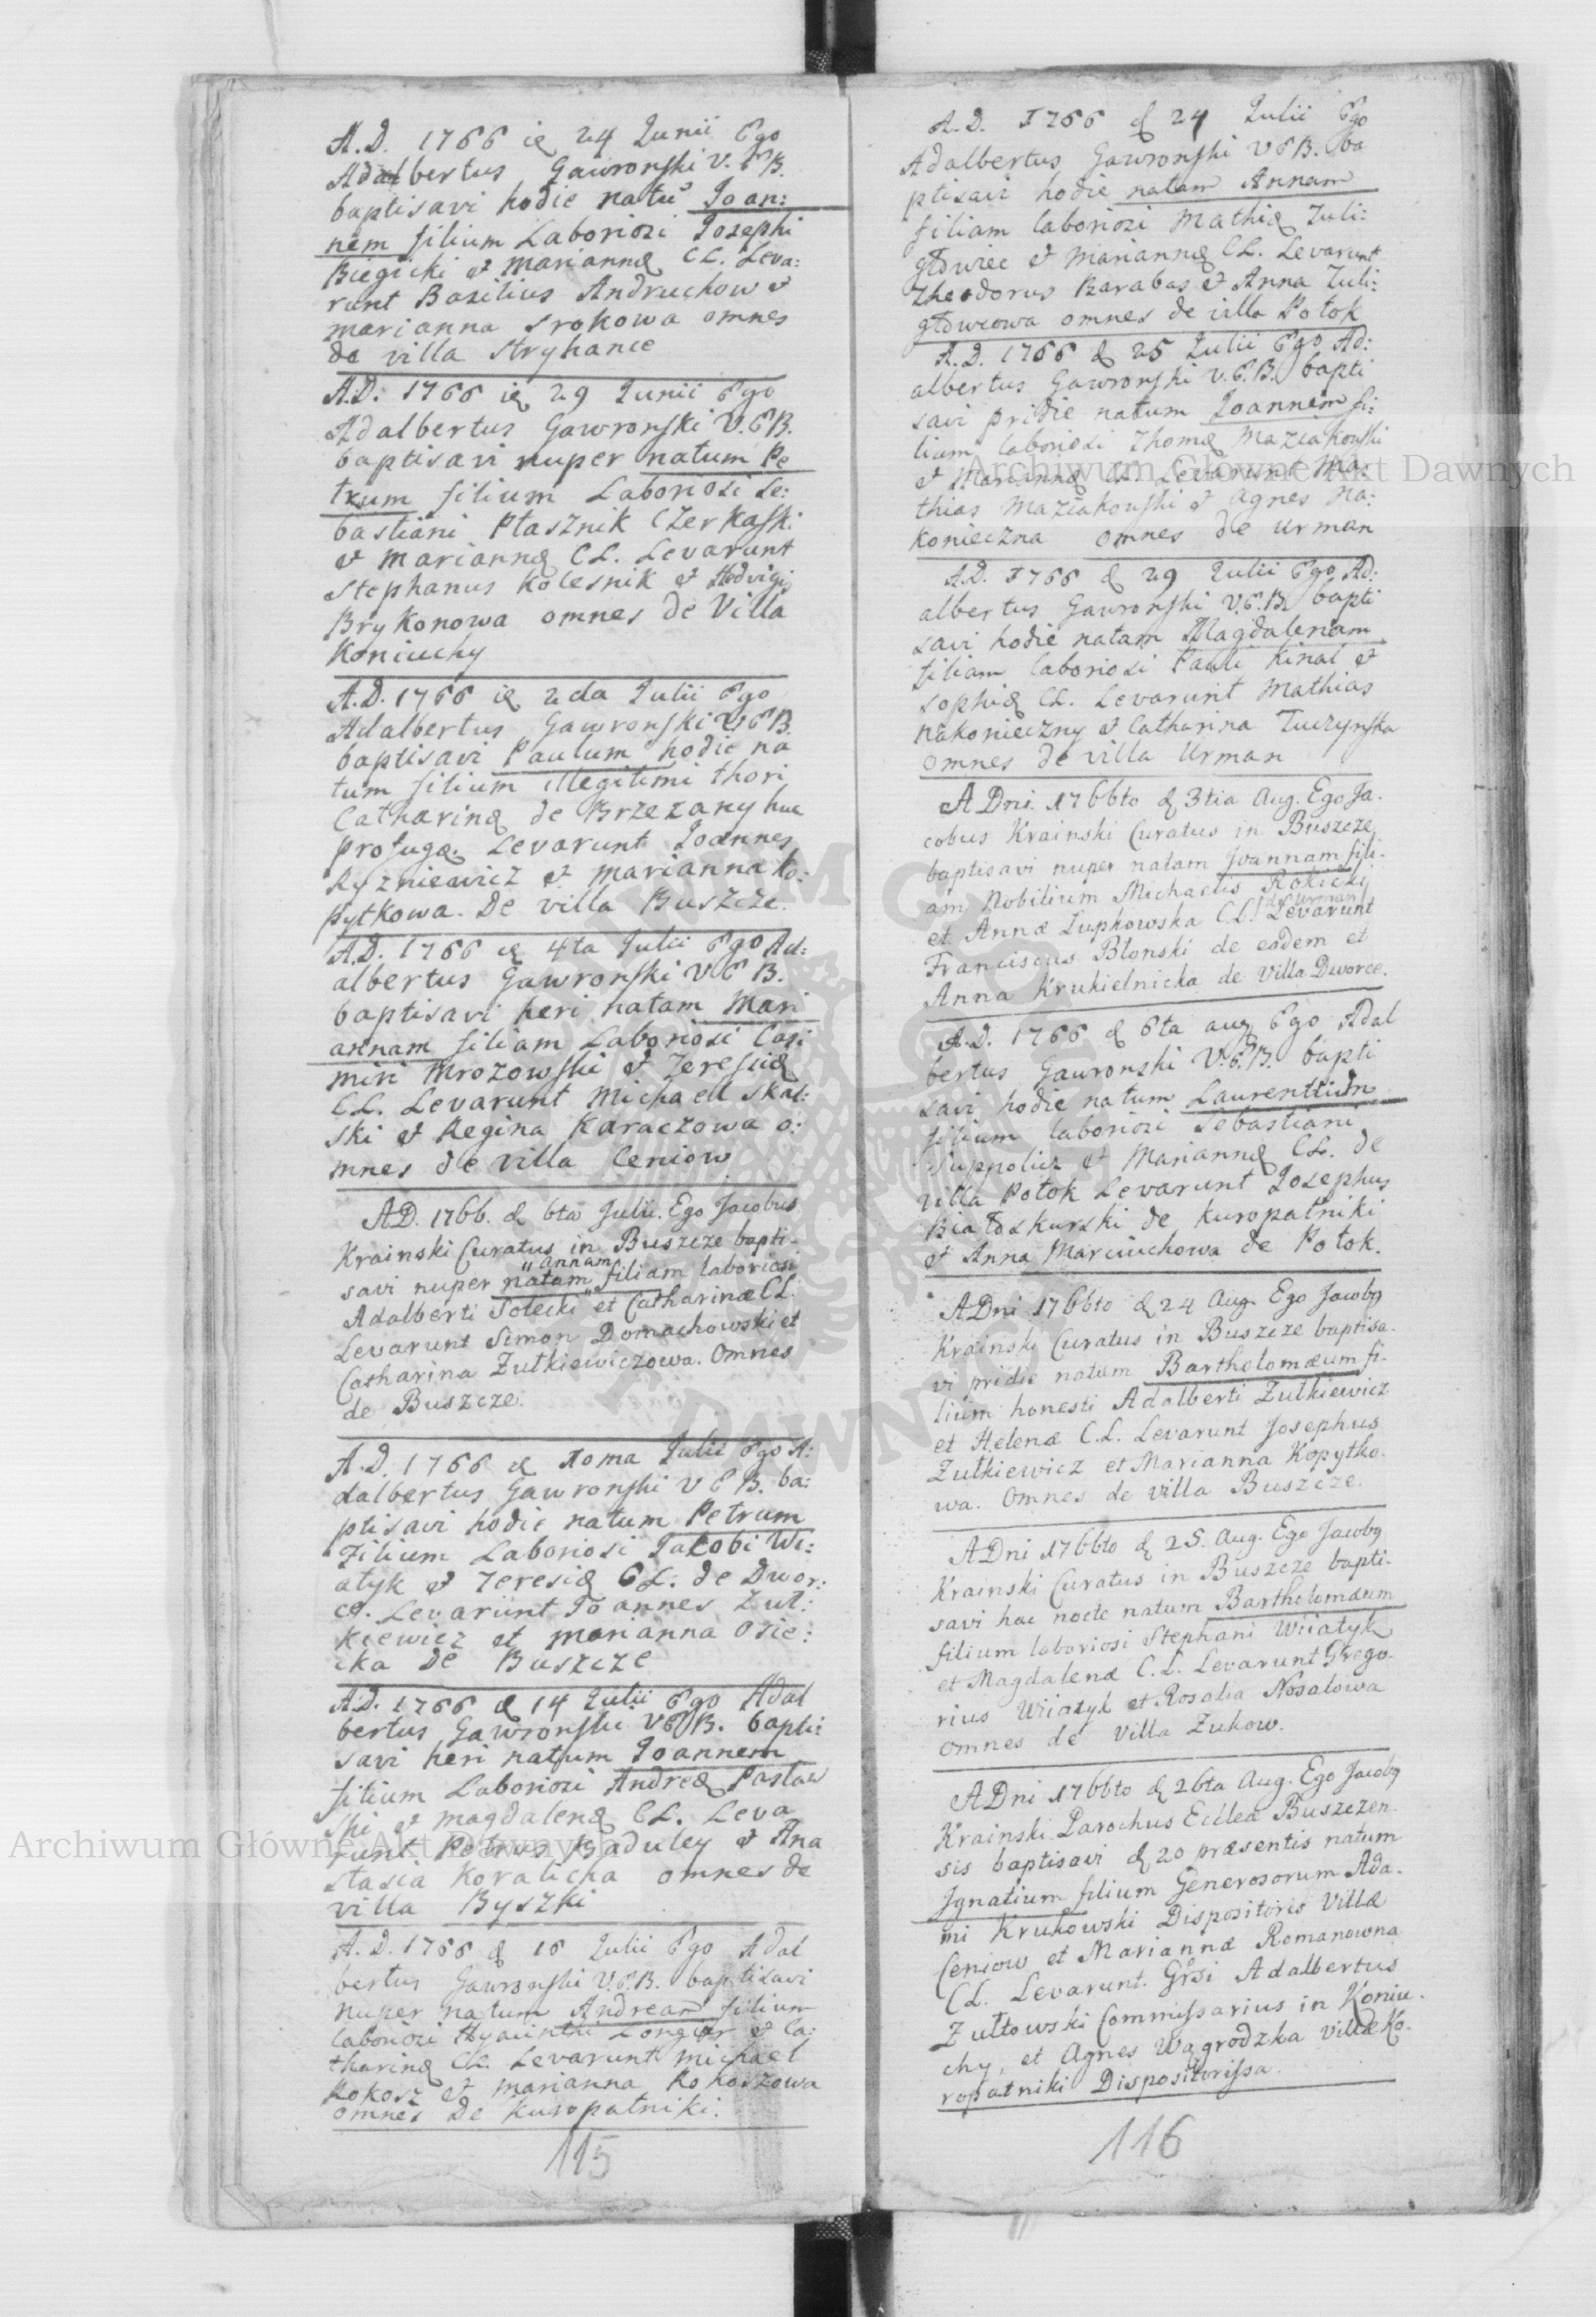 A.D. 1766 ię 24 Junii Ego
Adalbertus Gawronski V. E B.
baptisavi hodie natū Joan:
nem filium Laboriosi Josephi
Biegicki et Mariannę CL. Leva:
runt Basilius Andruchow et
Marianna Srokowa omnes
de villa Stryhance
A.D: 1766 ię 29 Junii Ego
Adalbertus Gawronski V.EB.
baptisavi nuper natum Pe
trum filium Laboriosi Se:
bastiani Ptasznik Czerkaski
et Mariannę CL. Levarunt
Stephanus Kolesnik et Hedvigis
Brykonowa omnes de Villa
Koniuchy
A.D. 1766 ię 2da Julii Ego
Adalbertus Gawronski V EB.
baptisavi Paulum hodie na
tum filium illegitimi thori
Catharinę de Brzezany huc
profugę. Levarunt Joannes
Ryzniewicz et Marianna Ko:
pytkowa. De villa Buszcze.
A.D. 1766 ę 4ta Julii Ego Ad:
albertus Gawronski V E B.
baptisavi heri natam Mari
annam filiam Laboriosi Casi
miri Mrozowski et Teresię
CL. Levarunt Michael Skal:
ski et Regina Karaczowa o:
mnes de villa Ceniow
AD. 1766. ę 6ta Julii. Ego Jacobus
Krainski Curatus in Buszcze bapti-
" annam
savi nuper natam " filiam laboriosi
Adalberti Solecki et Catharinæ CL.
Levarunt Simon Domachowski et
Catharina Zułkiewiczowa. Omnes
de Buszcze.
A.D. 1766 ę 10ma Julii Ego A:
dalbertus Gawronski V E B. ba:
ptisavi hodie natum Petrum
Filium Laboriosi Jakobi Wi:
atyk et Teresię CL. de Dwor:
ce. Levarunt Joannes Zuł:
kiewicz et Marianna Osie:
cka De Buszcze
A.D. 1766 ę 14 Julii Ego Adal
bertus Gawronski VEB. bapti:
savi heri natum Joannem
filium Laboriosi Andreę Pasław
ski et Magdalenę CL. Leva
runt Petrus Baduley et Ana
stasia Koralicha omnes de
villa Byszki
A.D. 1766 ę 16 Julii Ego Adal
bertus Gawronski V.E.B. baptisavi
nuper natum Andream filium
laboriosi Hyacinthi Longier et Ca:
tharinę CL. Levarunt Michael
Kokosz et Marianna Kokoszowa
omnes De Kuropatniki.
115
A.D. 1766 ę 24 Julii Ego
Adalbertus Gawronski V E B. ba
ptisavi hodie natam Annam
filiam laboriosi Mathię Tuli:
głowiec et Mariannę CL. Levarunt
Theodorus Barabas et Anna Tuli:
głowcowa omnes de villa Potok
A.D. 1766 ę 25 Julii Ego Ad:
albertus Gawronski V.E.B. bapti
savi pridie natum Joannem fi:
lium laboriosi Thomę Maziakowski
et Mariannę CL. Levarunt Ma:
thias Maziakowski et Agnes Na:
konieczna omnes de Urman
A.D. 1766 ę 29 Julii Ego Ad:
albertus Gawronski V.E.B. bapti
savi hodie natam Magdalenam
filiam laboriosi Pauli Kinal et
Sophię CL. Levarunt Mathias
Nakonieczny et Catharina Tuczynska
Omnes de villa Urman
A Dni. 1766to ę 3tia Aug. Ego Ja-
cobus Krainski Curatus in Buszcze
baptisavi nuper natam Joannam fili-
am Nobilium Michaelis Rokicky
de Urman
et Annæ Łupkowska CL. Levarunt
Franciscus Blonski de eodem et
Anna Krukielnicka de Villa Dworce.
A.D. 1766 ę 6ta aug Ego Adal
bertus Gawronski V.E.B. bapti
savi hodie natum Laurentium
filium laboriosi Sebastiani
Suppolicz et Mariannę CL. de
villa Potok Levarunt Josephus
Białoskurski de Kuropatniki
et Anna Marciuchowa de Potok.
ADni 1766to ę 24 Aug. Ego Jacobg
Krainski Curatus in Buszcze baptisa-
vi pridie natum Bartholomæum fi-
lium honesti Adalberti Zułkiewicz
et Helenæ C.L. Levarunt Josephus
Zułkiewicz et Marianna Kopytko-
wa. Omnes de villa Buszcze.
ADni 1766to ę 25. Aug. Ego Jacobg
Krainski Curatus in Buszcze bapti-
savi hac nocte natum Bartholomæum
filium laboriosi Stephani Wiiatyk
et Magdalenæ C.L. Levarunt Grego-
rius Wiiatyk et Rosalia Nosalowa
omnes de Villa Zukow.
ADni 1766to ę 26ta Aug. Ego Jacobg
Krainski Parochus Ecclea Buszczen-
sis baptisavi ę 20 præsentis natum
Ignatium filium Generosorum Ada-
mi Krukowski Dispositoris Villæ
Ceniow et Mariannæ Romanowna
CL. Levarunt. Grsi Adalbertus
Zułtowski Commissarius in Koniu-
chy, et Agnes Wągrodzka villæ Ko-
ropatniki Dispositorissa.
116
Archiwum Główne Akt Dawnych
Archiwum Główne Akt Dawnych